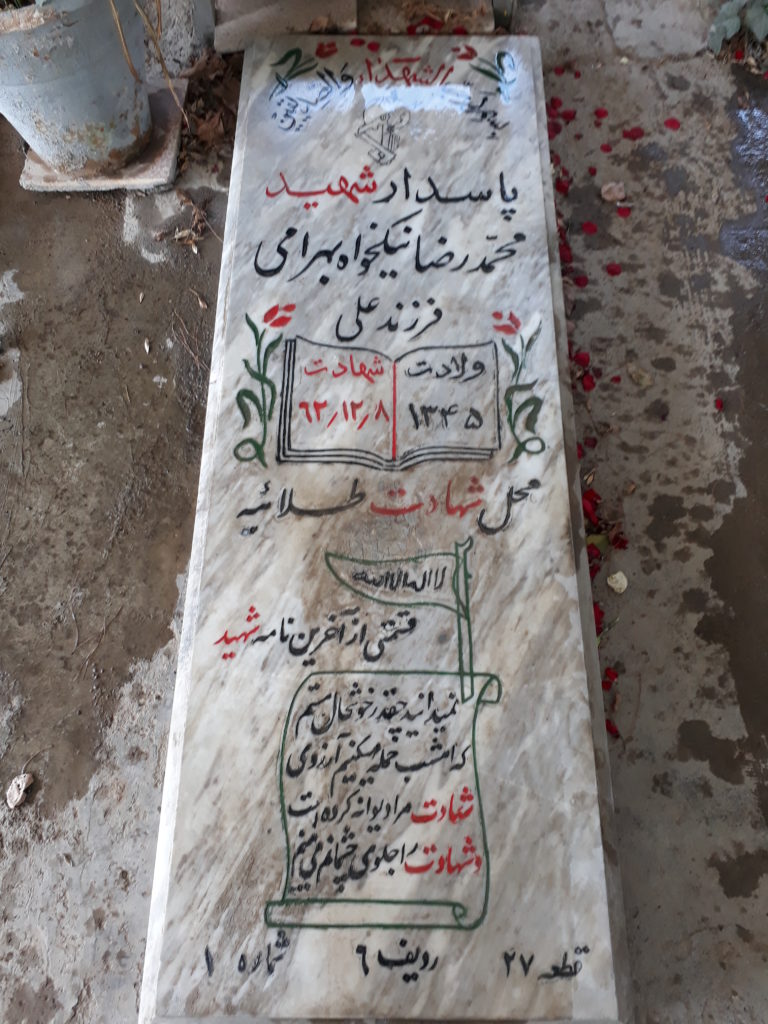 الشهداء والصدیقین
پاسدار شهید
محمّدرضا نیکخواه بهرامی
فرزند علی
ولادت شهادت
۱۳۴۵ ۶۲٫۱۲٫۸
محل شهادت طلائیه
لا اله الا الله
قسمتی از آخرین نامه شهید
نمیدانید چقدر خوشحال هستم
که امشب حمله میکنیم آرزوی
شهادت مرا دیوانه کرده است
و شهادت را جلوی چشمانم می بینم
قطعه ۲۷ ردیف ۶ شماره ۱